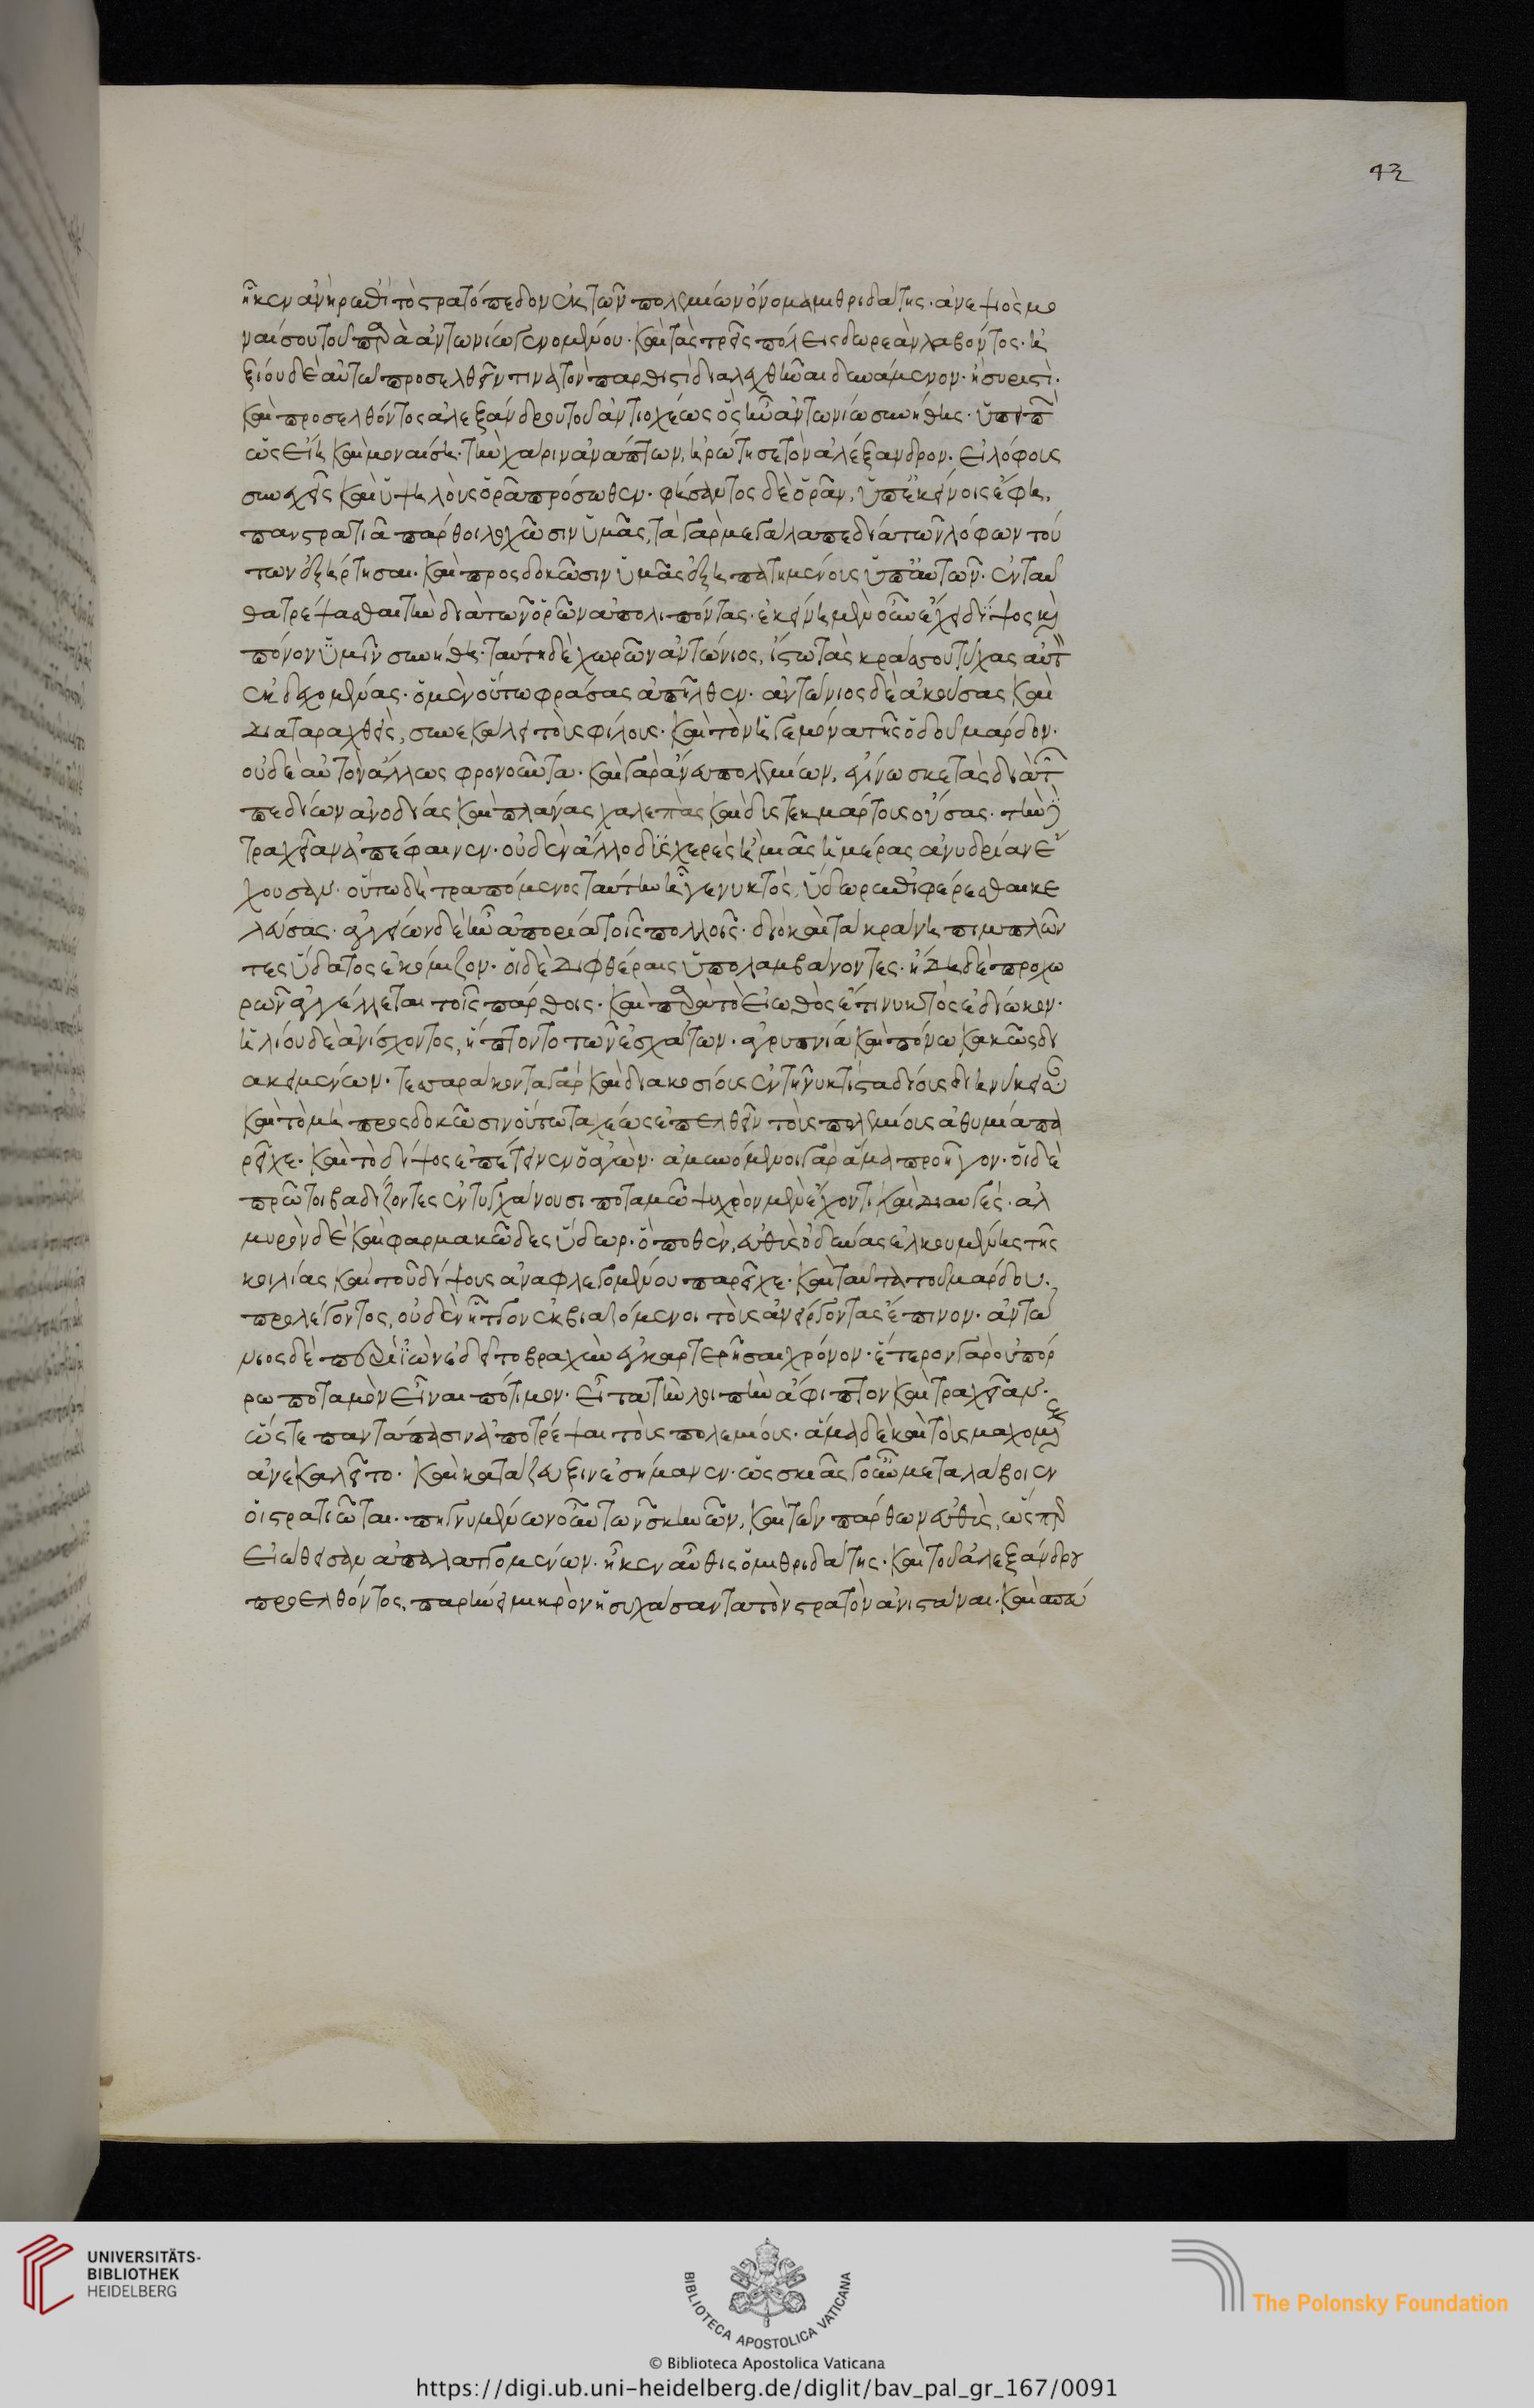 43
ἧκεν ἀνὴρ ἐπὶ τὸ στρατόπεδον ἐκ τῶν πολεμίων ὄνομα μιθριδάτης· ἀνεψιὸς μο
ναίσου τοῦ παρὰ ἀντωνίω γενομένου· καὶ τὰς τρεῖς πόλεις δωρεὰν λαβόντος· ἠ
ξίου δὲ αὐτῶ προσελθεῖν τινα τὸν παρθιστὶ διαλεχθῆναι δυνάμενον· ἢ συριστί·
καὶ προσελθόντος ἀλεξάνδρου τοῦ ἀντιοχέως ὃς ἦν ἀντωνίω συνήθης· ὑπειπὼν
ὡς εἴη καὶ μοναίση τὴν χάριν ἀνάπτων, ἠρώτησε τὸν ἀλέξανδρον· εἰ λόφους
συνεχεῖς καὶ ὑψηλοὺς ὁρᾶ πρόσωθεν· φήσαντος δὲ ὁρᾶν, ὑπ' ἐκείνοις ἔφη,
πανστρατιᾶ πάρθοι λοχῶσιν ὑμᾶς, τὰ γὰρ μεγάλα πεδία τῶν λόφων τού
των ἐξήρτησαι· καὶ προσδοκῶσιν ὑμᾶς ἐξηπατημένους ὑπ' αὐτῶν· ἐνταῦ
θα τρέψασθαι τὴν διὰ τῶν ὀρῶν ἀπολιπόντας· ἐκείνη μὲν οὖν ἔχει δίψος καὶ
πόνον ὑμῖν συνήθη· ταύτη δὲ χωρῶν ἀντώνιος, ἴστω τὰς κράσσου τύχας αὐτὸν
ἐκδεχομένας· ὁ μὲν οὕτω φράσας ἀπῆλθεν· ἀντώνιος δὲ ἀκούσας καὶ
διαταραχθεὶς, συνεκάλει τοὺς φίλους· καὶ τὸν ἡγεμόνα τῆς ὁδοῦ μάρδον·
οὐδὲ αὐτὸν ἄλλως φρονοῦντα· καὶ γὰρ ἄνευ πολεμίων, γίνωσκε τὰς διὰ τῶν
πεδίων ἀνοδίας καὶ πλάνας χαλεπὰς καὶ δυστεκμάρτους οὔσας· τὴν δὲ
τραχεῖαν ἀπέφαινεν· οὐδὲν ἄλλο δυσχερὲς ἢ μιᾶς ἡμέρας ἀνυδρίαν ἔ
χουσαν· οὕτω δὴ τραπόμενος ταύτην ἦγε νυκτὸς, ὕδωρ ἐπιφέρεσθαι κε
λεύσας· ἀγγείων δὲ ἦν ἀπορία τοῖς πολλοῖς· διὸ καὶ τὰ κράνη πιμπλῶν
τες ὕδατος ἐκόμιζον· οἱ δὲ διφθέραις ὑπολαμβάνοντες· ἤδη δὲ προχω
ρῶν ἀγγέλλεται τοῖς πάρθοις· καὶ παρὰ τὸ εἰωθὸς ἔτι νυκτὸς ἐδίωκον·
ἡλίου δὲ ἀνίσχοντος, ἥπτοντο τῶν ἐσχάτων· ἀγρυπνία καὶ πόνω κακῶς δι
ακειμένων· τεσσαράκοντα γὰρ καὶ διακοσίους ἐν τῆ νυκτὶ σταδίους διηνύκεσαν·
καὶ τὸ μὴ προσδοκῶσιν οὕτω ταχέως ἐπελθεῖν τοὺς πολεμίους ἀθυμία πα
ρεῖχε· καὶ τὸ δίψος ἐπέτεινεν ὁ ἀγών· ἀμυνόμενοι γὰρ ἅμα προῆγον· οἱ δὲ
πρῶτοι βαδίζοντες ἐντυγχάνουσι ποταμῶ ψυχρὸν μὲν ἔχοντι καὶ διαυγὲς· ἁλ
μυρὸν δὲ καὶ φαρμακῶδες ὕδωρ· ὃ ποθὲν, εὐθὺς ὀδύνας ἑλκουμένης τῆς
κοιλίας καὶ τοῦ δίψους ἀναφλεγομένου παρεῖχε· καὶ ταῦτα τοῦ μάρδου
προλέγοντος, οὐδὲν ἧττον ἐκβιαζόμενοι τοὺς ἀνείργοντας ἔπινον· ἀντώ
νιος δὲ περιϊὼν ἐδεῖτο βραχὺν ἐγκαρτερῆσαι χρόνον· ἕτερον γὰρ οὐ πόρ
ρω ποταμὸν εἶναι πότιμον· εἶτα τὴν λοιπὴν ἄφιππον καὶ τραχεῖαν·
ὥστε παντάπασιν ἀποτρέψαι τοὺς πολεμίους· ἅμα δὲ καὶ τοὺς μαχομένους
ἀνεκαλεῖτο· καὶ κατάζευξιν ἐσήμανεν· ὡς σκιᾶς γοῦν μεταλάβοιεν
οἱ στρατιῶται· πηγνυμένων οὖν τῶν σκηνῶν, καὶ τῶν πάρθων εὐθὺς, ὥσπερ
εἰώθεσαν ἀπαλαττομένων· ἧκεν αὖθις ὁ μιθριδάτης· καὶ τοῦ ἀλεξάνδρου
προελθόντος, παρήνει μικρὸν ἡσυχάσαντα τὸν στρατὸν ἀνιστάναι· καὶ σπεύ
UNIVERSITÄTS-
BIBLIOTHEK
HEIDELBERG
BIBLIOTECA APOSTOLICA VATICANA
The Polonsky Foundation
© Biblioteca Apostolica Vaticana
https://digi.ub.uni-heidelberg.de/diglit/bav_pal_gr_167/0091